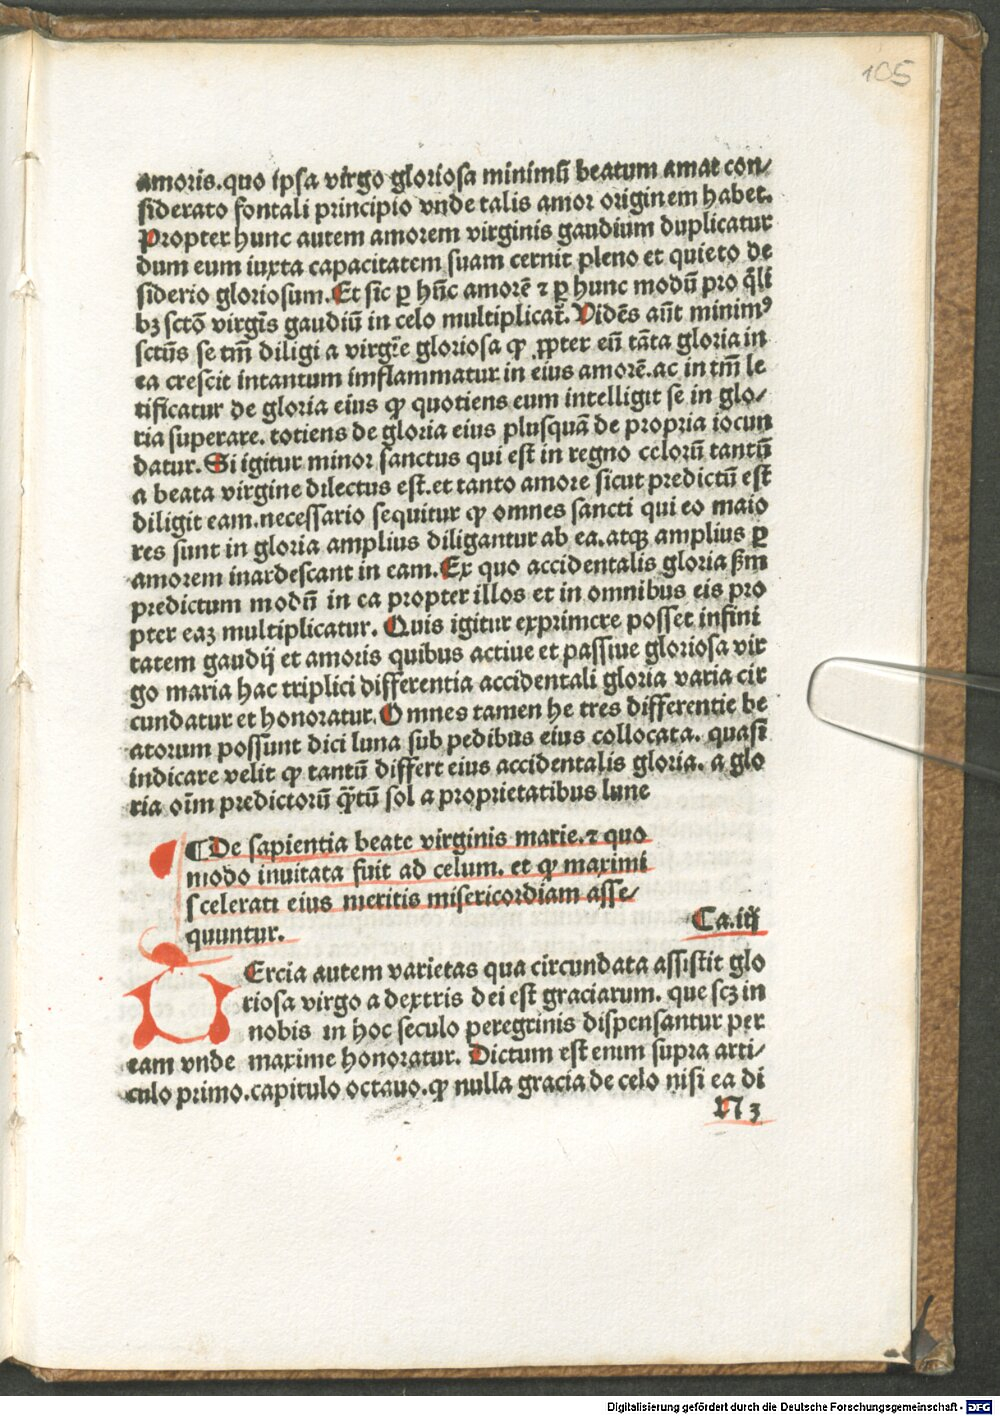 105
amoris.quo ipsa virgo gloriosa minimū beatum amat con/
siderato fontali principio vnde talis amor originem habet.
Propter hunc autem amorem virginis gaudium duplicatur
dum eum iuxta capacitatem suam cernit pleno et quieto de
siderio gloriosum.Et sic ꝑ hūc amorē ⁊ ꝑ hunc modū pro q̄li
bꝫ sctō virgīs gaudiū in celo multiplicat̄. Uidēs aūt minimꝰ
sctūs se tm̄ diligi a virgīe gloriosa ꝙ ꝓpter eū tāta gloria in
ea crescit intantum imflammatur in eius amorē.ac in tm̄ le
tificatur de gloria eius ꝙ quotiens eum intelligit se in glo/
ria superare. totiens de gloria eius plusquā de propria iocun
datur. Si igitur minor sanctus qui est in regno celorū tantū
a beata virgine dilectus est.et tanto amore sicut predictū est
diligit eam.necessario sequitur ꝙ omnes sancti qui eo maio
res sunt in gloria amplius diligantur ab ea.atqꝫ amplius ꝑ
amorem inardescant in eam. Ex quo accidentalis gloria ẜm
predictum modū in ea propter illos et in omnibus eis pro
pter eaꝫ multiplicatur. Quis igitur exprimere posset infini
tatem gaudij et amoris quibus actiue et passiue gloriosa vir
go maria hac triplici differentia accidentali gloria varia cir
cundatur et honoratur. Omnes tamen he tres differentie be
atorum possunt dici luna sub pedibus eius collocata. quasi
indicare velit ꝙ tantū differt eius accidentalis gloria. a glo
ria oīm predictorū q̄tū sol a proprietatibus lune
¶ De sapientia beate virginis marie. ⁊ quo
modo inuitata fuit ad celum. et ꝙ maximi
scelerati eius meritis misericordiam asse/
quuntur.
Ca.iij
Ercia autem varietas qua circundata assistit glo
riosa virgo a dextris dei est graciarum. que scꝫ in
nobis in hoc seculo peregrinis dispensantur per
eam vnde maxime honoratur. Dictum est enim supra arti/
culo primo.capitulo octauo.ꝙ nulla gracia de celo nisi ea di
N 3
Digitalisierung gefördert durch die Deutsche Forschungsgemeinschaft - DFG